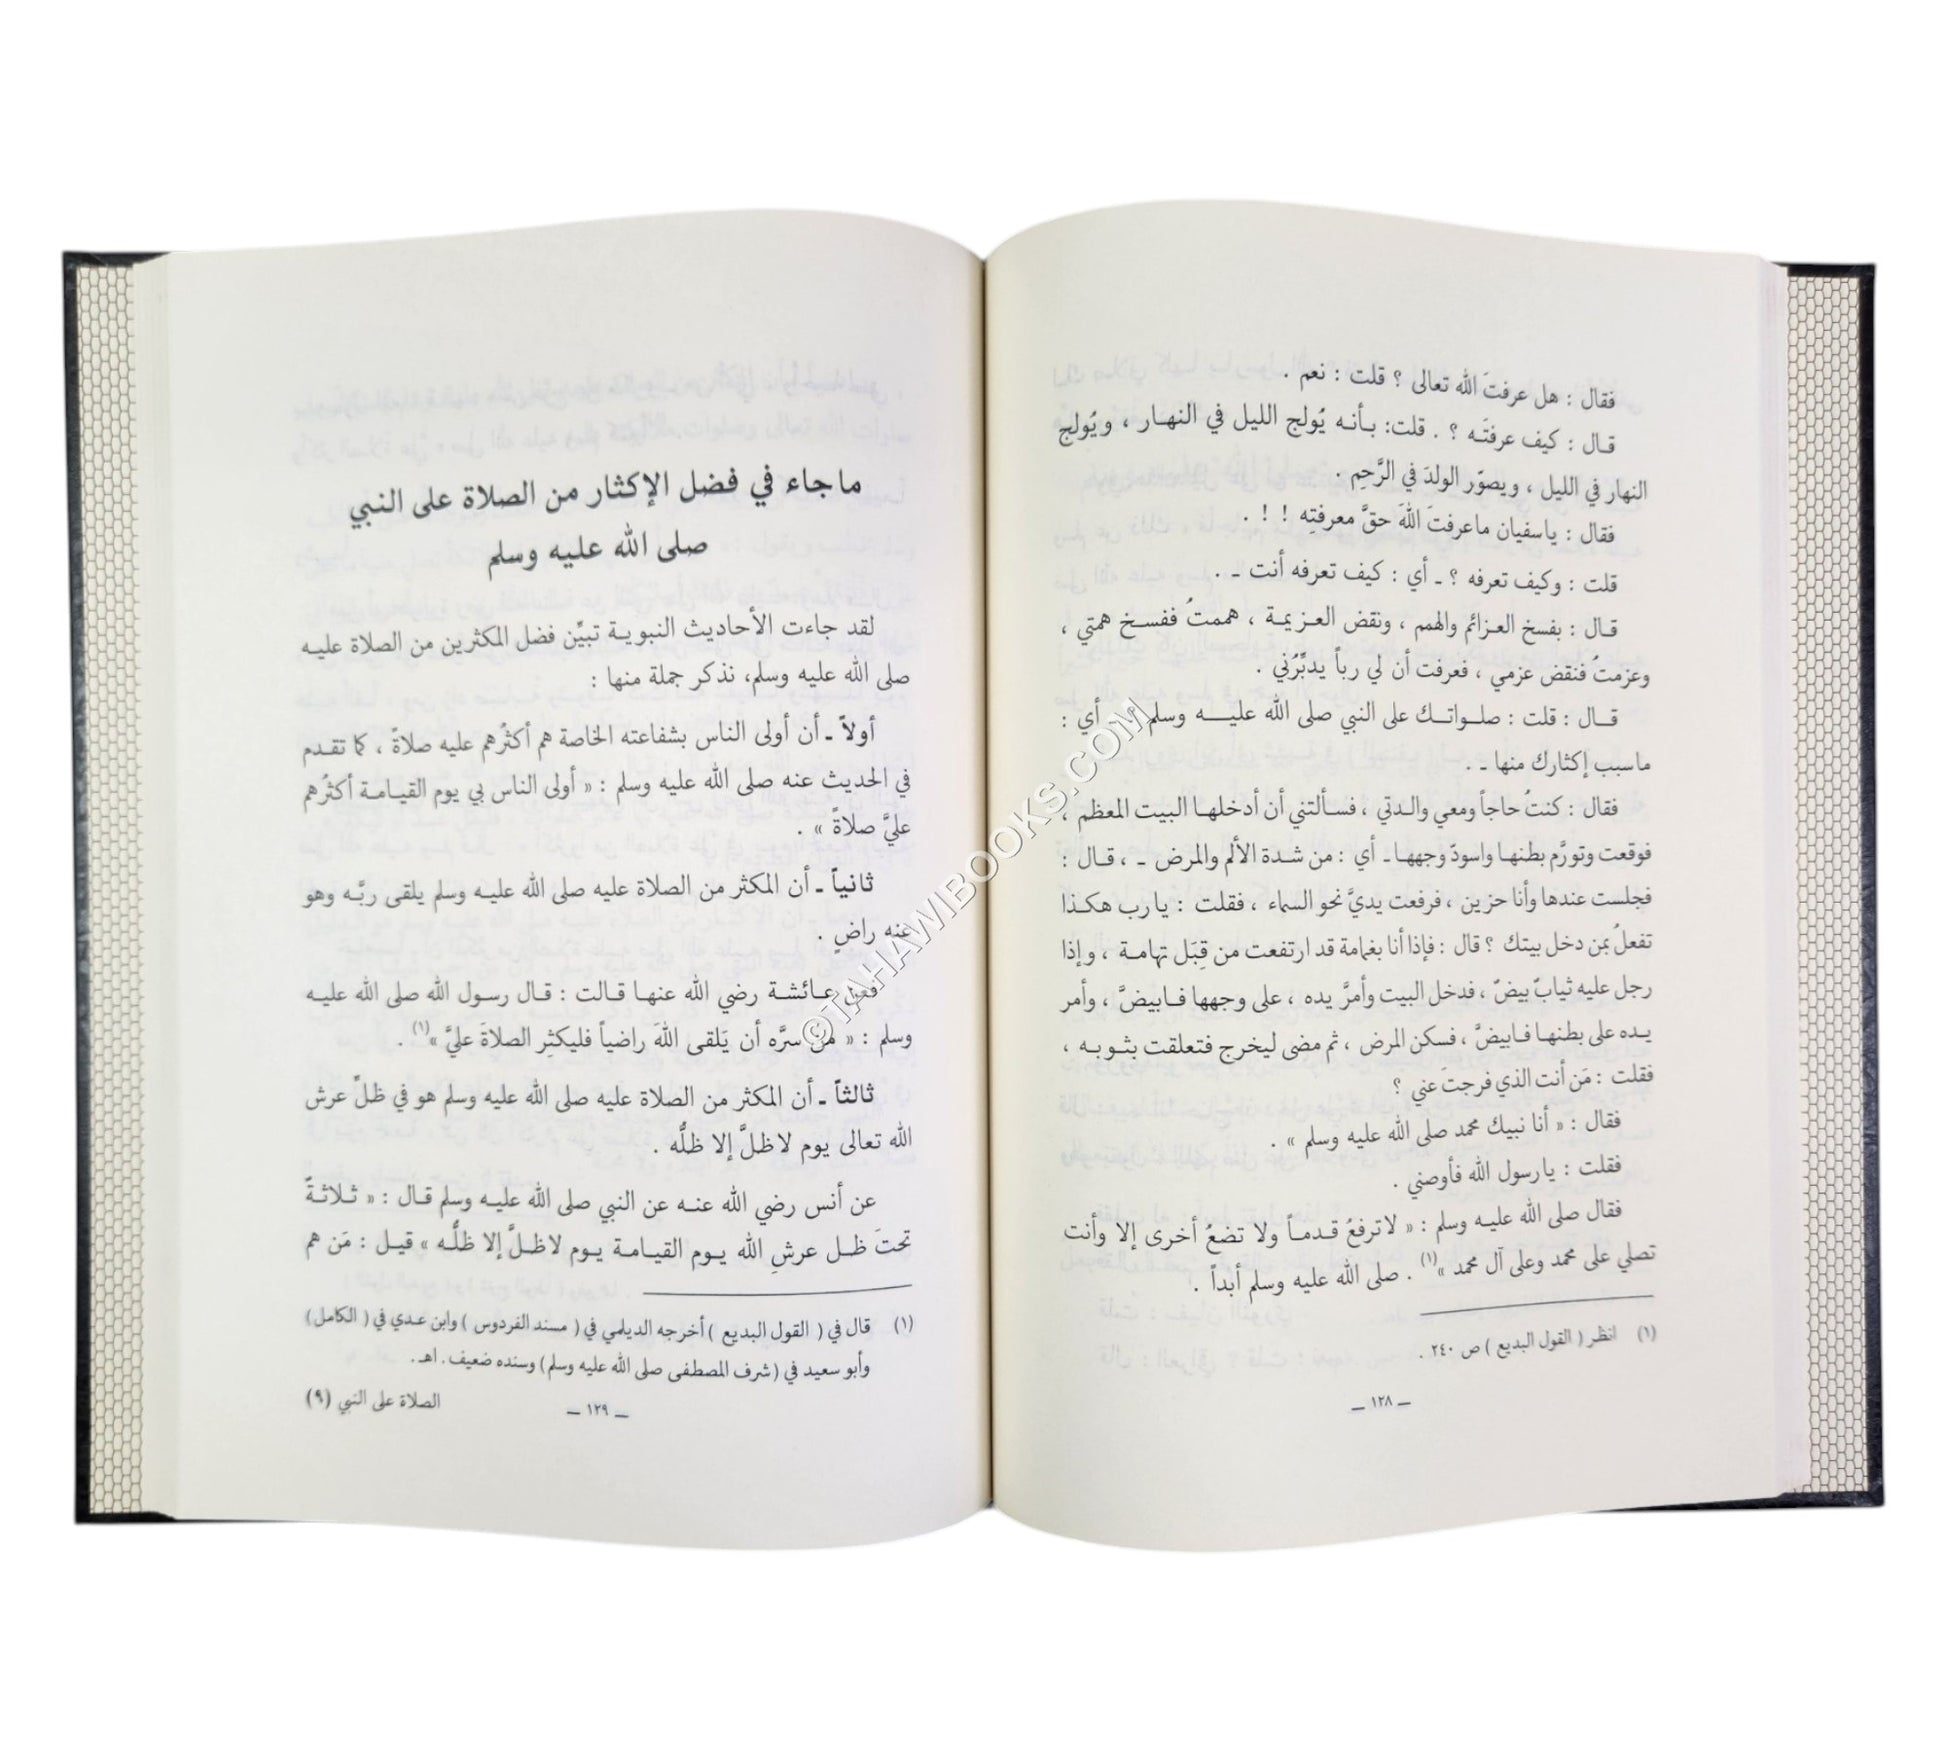 فقال : هل عرفتَ الله تعالى ؟ قلت : نعم .
قـال : كيف عرفتَـه ؟ . قلت: بـأنـه يُولج الليل في النهـار ، ويُولج
النهار في الليل ، ويصوّر الولدَ في الرَّحِم .
فقال : ياسفيان ماعرفتَ اللهَ حقَّ معرفتِه ! ! .
قلت : وكيف تعرفه ؟ ـ أي : كيف تعرفه أنت ـ .
قـال : بفسخ العـزائم والهمم ، ونقض العـزيمـة ، هممتُ ففسـخ همتي ،
وعزمتُ فنقض عزمي ، فعرفت أن لي رباً يدبِّرُني .
قـال : قلت : صلـواتـك على النبي صلى الله عليـه وسلم ـ أي :
ماسبب إكثارك منها ـ .
فقال : كنتُ حاجاً ومعي والـدتي ، فسـألتني أن أدخلهـا البيت المعظم ،
فوقعت وتورَّم بطنهـا واسودّ وجههـا ـ أي : من شـدة الألم والمرض ـ ، قـال :
فجلست عندها وأنا حزين ، فرفعت يديَّ نحو السماء ، فقلت : يارب هكـذا
تفعلُ بمن دخل بيتك ؟ قال : فإذا أنا بغمامة قد ارتفعت من قِبَل تهامـة ، وإذا
رجل عليه ثيابٌ بيضٌ ، فدخل البيت وأمرَّ يده ، على وجهها فـابيضَّ ، وأمر
يـده على بطنهـا فـابيضَّ ، فسكن المرض ، ثم مضى ليخرج فتعلقت بثـوبـه ،
فقلت : مَن أنت الذي فرجتَ عني ؟
فقال : « أنا نبيك محمد صلى الله عليه وسلم » .
فقلت : يارسول الله فأوصني .
فقال صلى الله عليه وسلم : « لاترفعُ قـدمـاً ولا تضعُ أخرى إلا وأنت
تصلي على محمد وعلى آل محمد »(١) . صلى الله عليه وسلم أبداً .
(١) انظر ( القول البديع ) ص ٢٤٠ .
ـ ١٢٨ ـ
ماجاء في فضل الإكثار من الصلاة على النبي
صلى الله عليه وسلم
لقد جاءت الأحاديث النبويـة تبيِّن فضل المكثرين من الصلاة عليـه
صلى الله عليه وسلم، نذكر جملة منها :
أولاً ـ أن أولى الناس بشفاعته الخاصة هم أكثرُهم عليه صلاةً ، كما تقـدم
في الحديث عنه صلى الله عليه وسلم : « أولى الناس بي يوم القيـامـة أكثرُهم
عليَّ صلاةً » .
ثانياً ـ أن المكثر من الصلاة عليه صلى الله عليـه وسلم يلقى ربَّـه وهو
عنه راضٍ .
فعن عـائشـة رضي الله عنهـا قـالت : قـال رسـول الله صلى الله عليـه
وسلم : « من سرَّه أن يَلقى اللهَ راضياً فليكثِرِ الصلاةَ عليَّ »(١) .
ثالثاً ـ أن المكثر من الصلاة عليه صلى الله عليه وسلم هو في ظلِّ عرش
الله تعالى يوم لاظلَّ إلا ظلُّه .
عن أنس رضي الله عنـه عن النبي صلى الله عليـه وسلم قـال : « ثـلاثـةٌ
تحتَ ظـل عرشِ الله يـوم القيـامـة يـوم لاظـلَّ إلا ظلُّـه » قيـل : مَن هم
(١) قال في ( القول البديع ) أخرجه الديلمي في ( مسند الفردوس ) وابن عـدي في ( الكامل )
وأبو سعيد في (شرف المصطفى صلى الله عليه وسلم) وسنده ضعيف . اهـ .
ـ ١٢٩ ـ
الصلاة على النبي (٩)
©TAHAWIBOOKS.COM